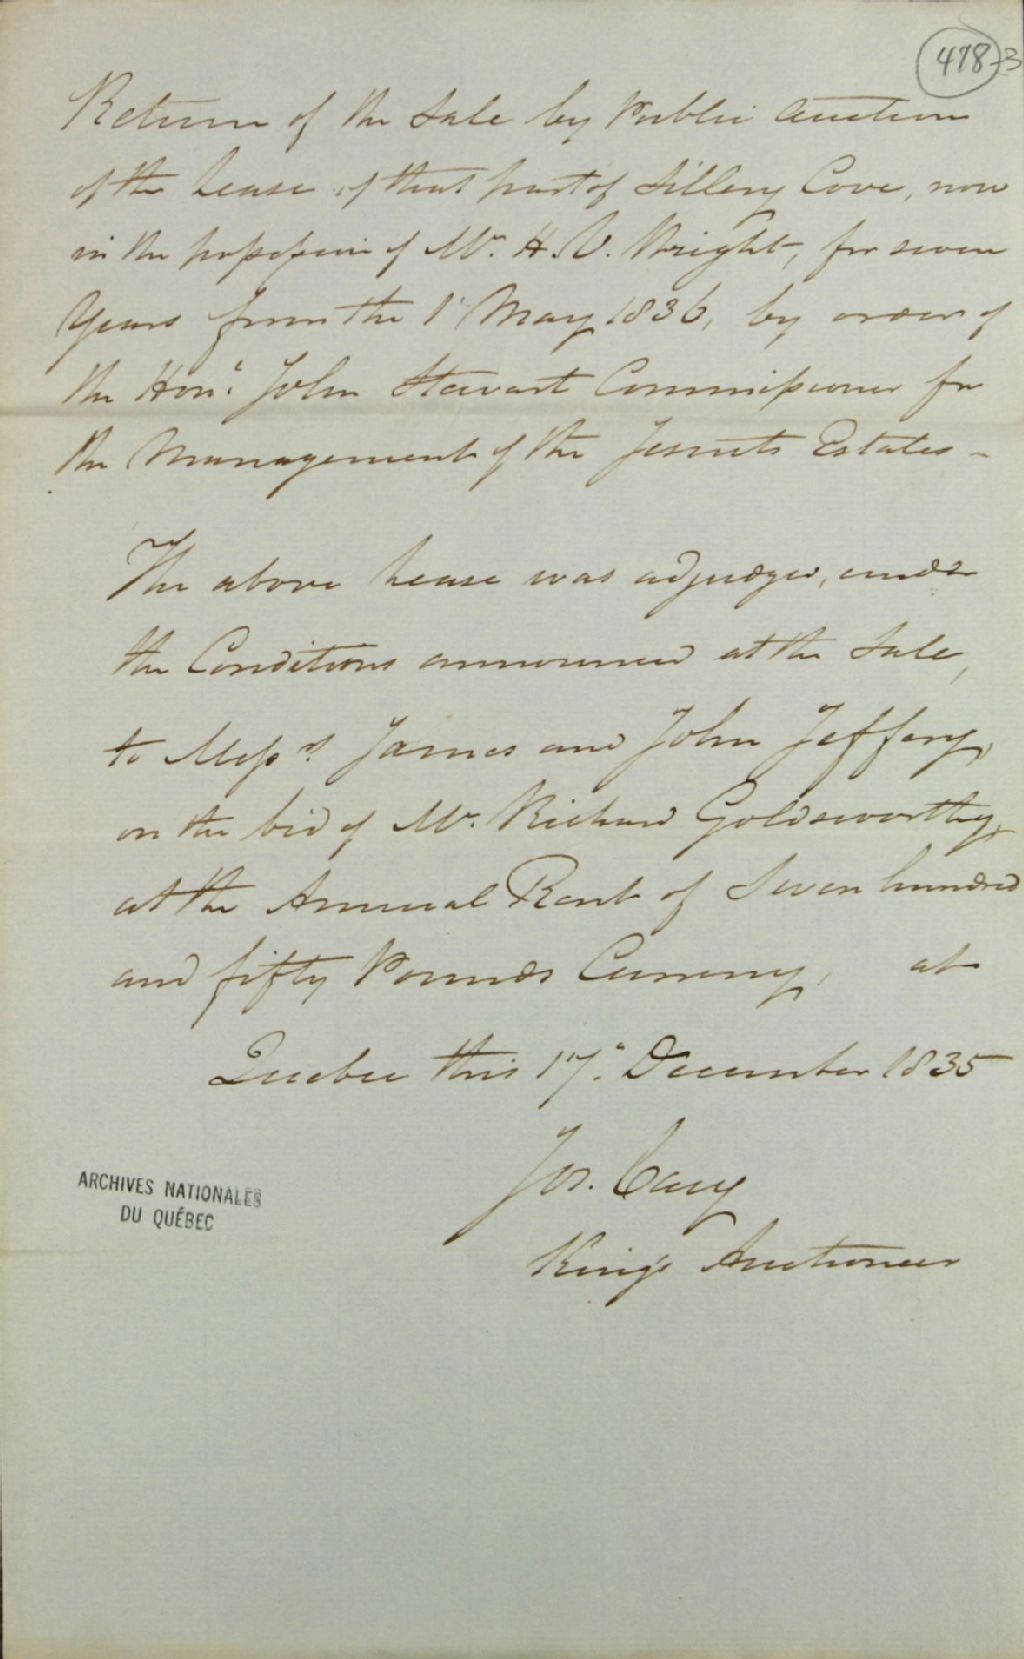 478-3
Return of the Sale by Public Auction
of the Lease of that part of Sillery Cove, now
in the possession of Mr. H. N. Wright, for seven
Years from the 1st May 1836, by order of
the Honl. John Stewart Commissioner for
the Management of the Jesuits Estates -
The above Lease was adjudged, under
the Conditions announced at the Sale,
to Messrs James and John Jeffery,
on the bid of Mr. Richard Goldsworthy,
at the Annual Rent of Seven hundred
and fifty Pounds Currency, at
Quebec this 17th December 1835
Jos. Cary
King's Auctioneer
ARCHIVES NATIONALES
DU QUÉBEC